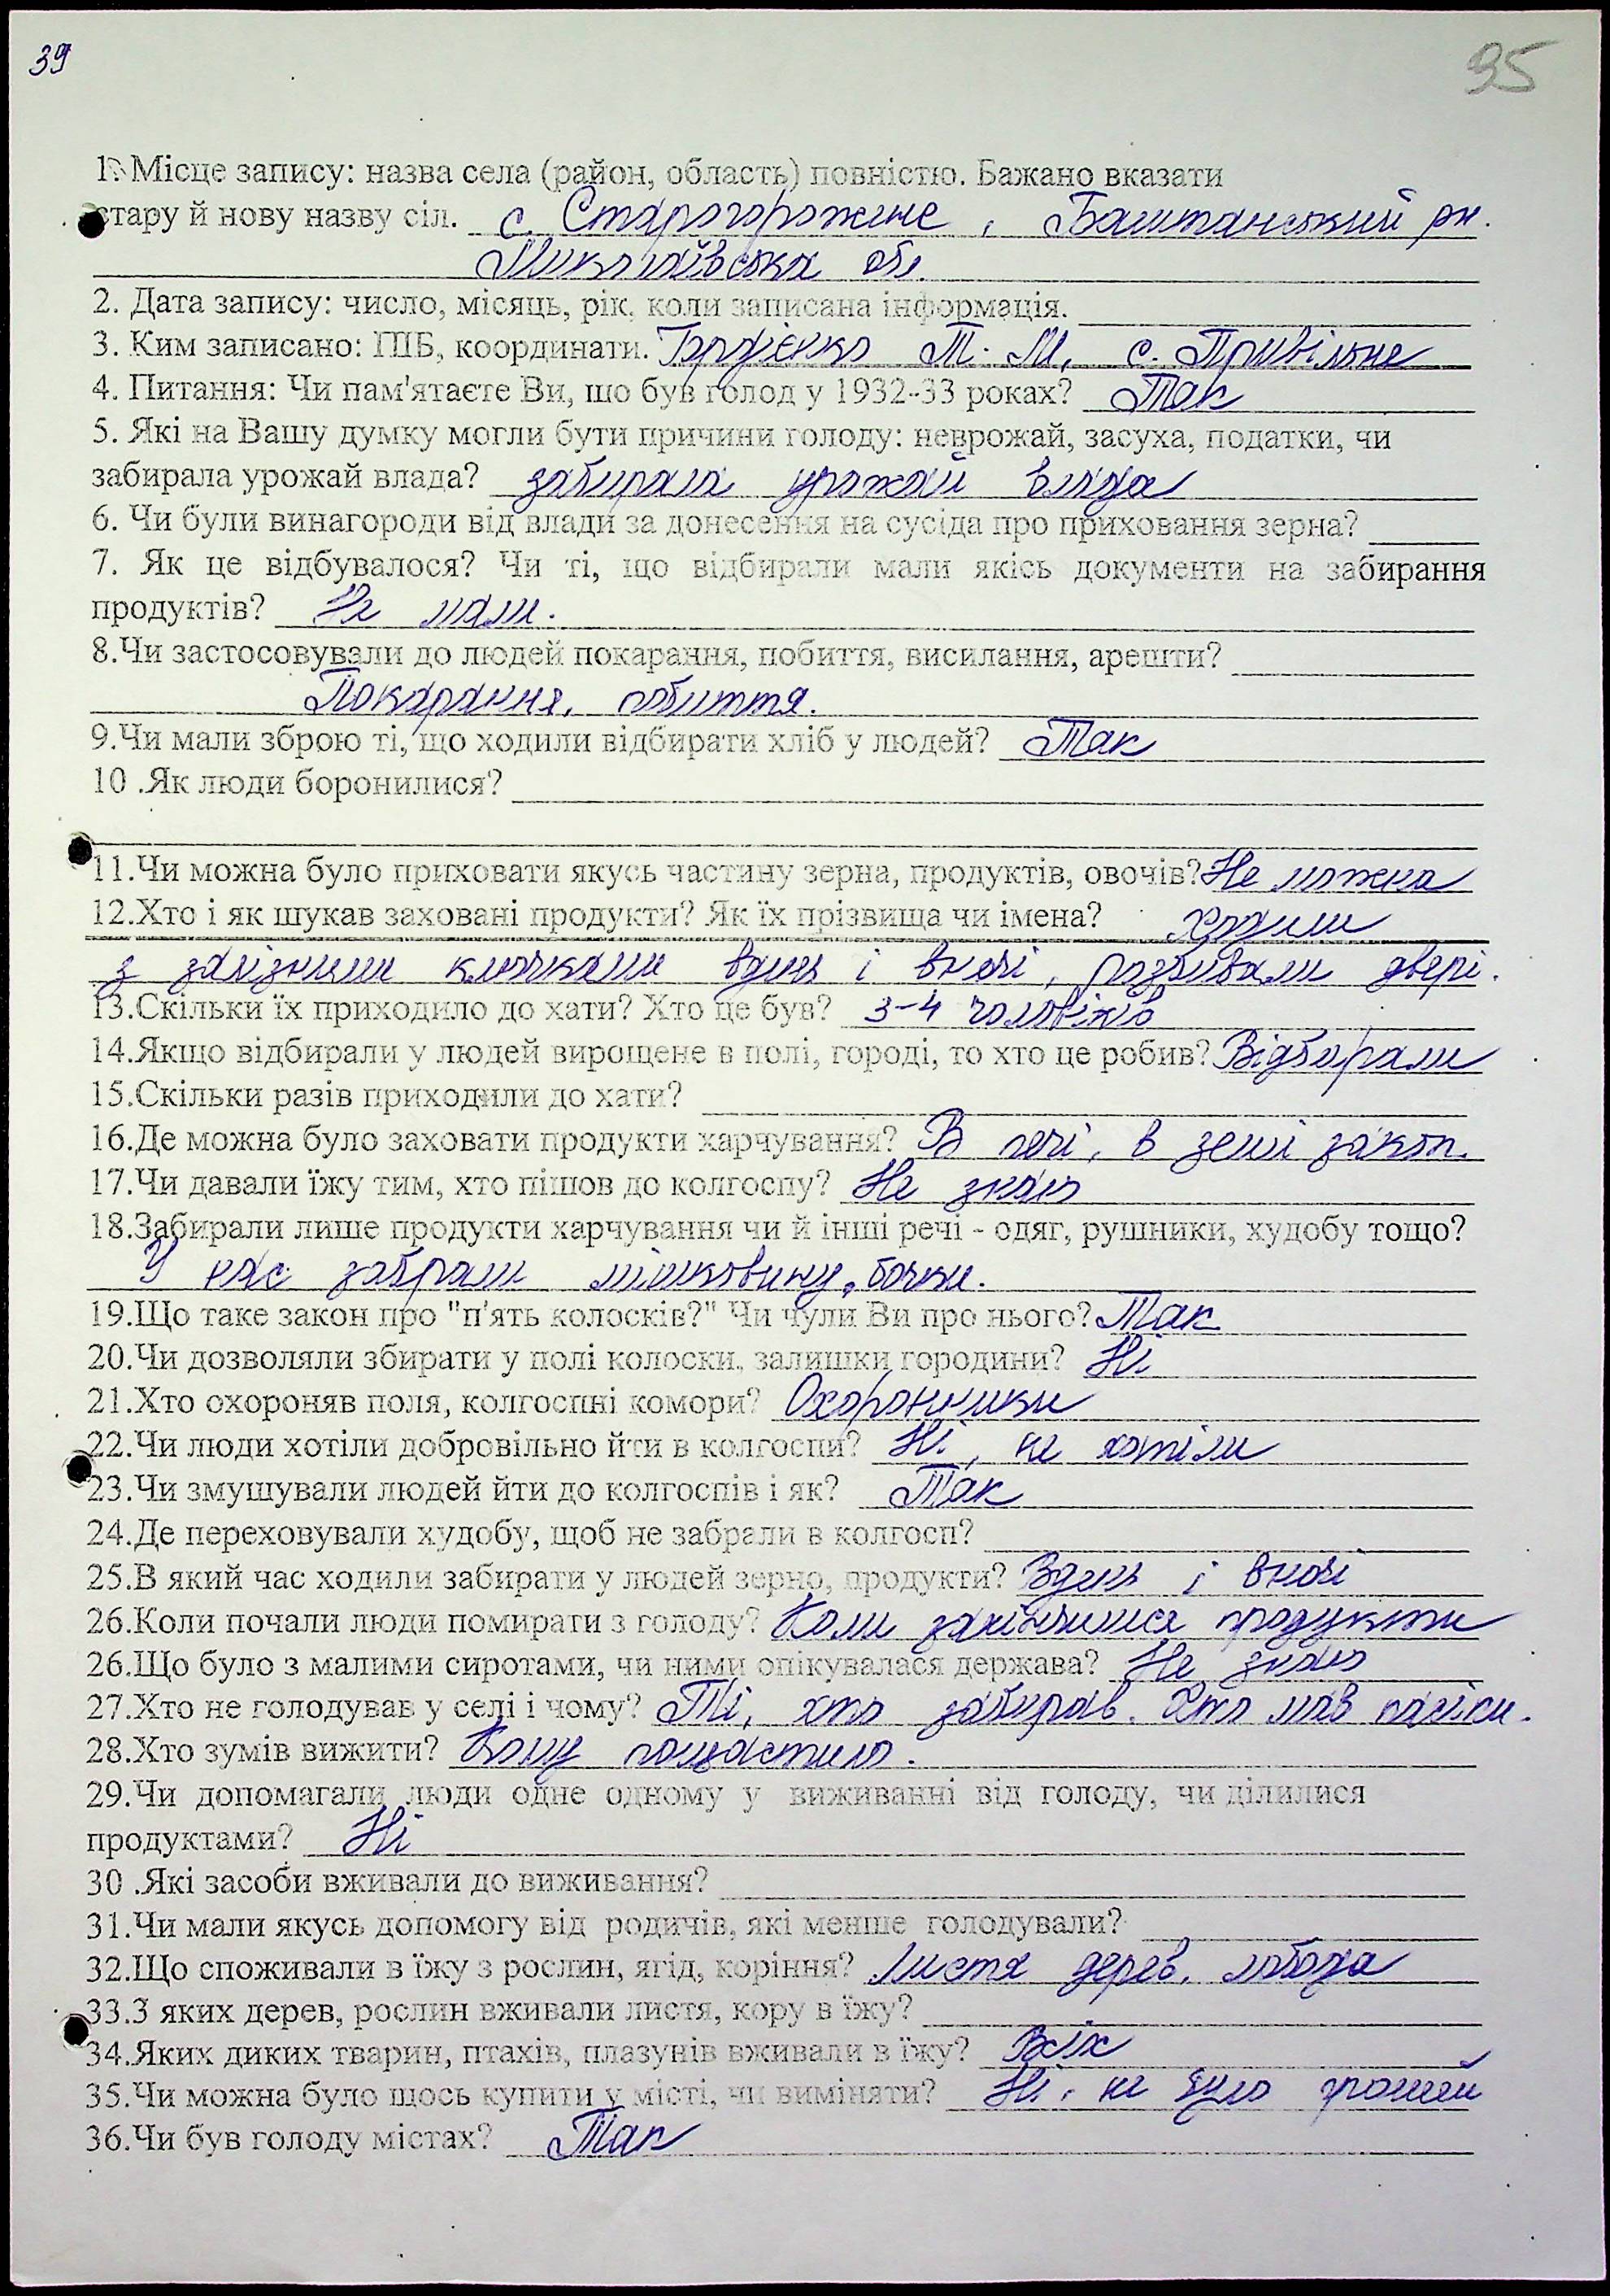 39
95
1. Місце запису: назва села (район, область) повністю. Бажано вказати
стару й нову назву сіл. с. Старогорожене, Баштанський рн.
Миколаївська обл.
2. Дата запису: число, місяць, рік, коли записана інформація.
3. Ким записано: ПІБ, координати. Гордієнко Т. М, с. Привільне
4. Питання: Чи пам'ятаєте Ви, що був голод у 1932-33 роках? Так
5. Які на Вашу думку могли бути причини голоду: неврожай, засуха, податки, чи
забирала урожай влада? забирала урожай влада
6. Чи були винагороди від влади за донесення на сусіда про приховання зерна?
7. Як це відбувалося? Чи ті, що відбирали мали якісь документи на забирання
продуктів? Не мали.
8.Чи застосовували до людей покарання, побиття, висилання, арешти?
Покарання, побиття.
9.Чи мали зброю ті, що ходили відбирати хліб у людей? Так
10 .Як люди боронилися?
11.Чи можна було приховати якусь частину зерна, продуктів, овочів? Не можна
12.Хто і як шукав заховані продукти? Як їх прізвища чи імена? Ходили
з залізними ключками вдень і вночі, розбивали двері.
13.Скільки їх приходило до хати? Хто це був? 3-4 чоловіків
14.Якщо відбирали у людей вирощене в полі, городі, то хто це робив? Відбирали
15.Скільки разів приходили до хати?
16.Де можна було заховати продукти харчування? В печі, в землі закоп.
17.Чи давали їжу тим, хто пішов до колгоспу? Не знаю
18.Забирали лише продукти харчування чи й інші речі - одяг, рушники, худобу тощо?
У нас забрали мішковину, бочки.
19.Що таке закон про "п'ять колосків?" Чи чули Ви про нього? Так
20.Чи дозволяли збирати у полі колоски, залишки городини? Ні
21.Хто охороняв поля, колгоспні комори? Охоронники
22.Чи люди хотіли добровільно йти в колгоспи? Ні, не хотіли
23.Чи змушували людей йти до колгоспів і як? Так
24.Де переховували худобу, щоб не забрали в колгосп?
25.В який час ходили забирати у людей зерно, продукти? Вдень і вночі
26.Коли почали люди помирати з голоду? Коли закінчилися продукти
26.Що було з малими сиротами, чи ними опікувалася держава? Не знаю
27.Хто не голодував у селі і чому? Ті, хто забирав. Хто мав пасіки.
28.Хто зумів вижити? Кому пощастило.
29.Чи допомагали люди одне одному у виживанні від голоду, чи ділилися
продуктами? Ні
30 .Які засоби вживали до виживання?
31.Чи мали якусь допомогу від родичів, які менше голодували?
32.Що споживали в їжу з рослин, ягід, коріння? Листя дерев, лобода
33.З яких дерев, рослин вживали листя, кору в їжу?
34.Яких диких тварин, птахів, плазунів вживали в їжу? Всіх
35.Чи можна було щось купити у місті, чи виміняти? Ні, не було грошей
36.Чи був голоду містах? Так